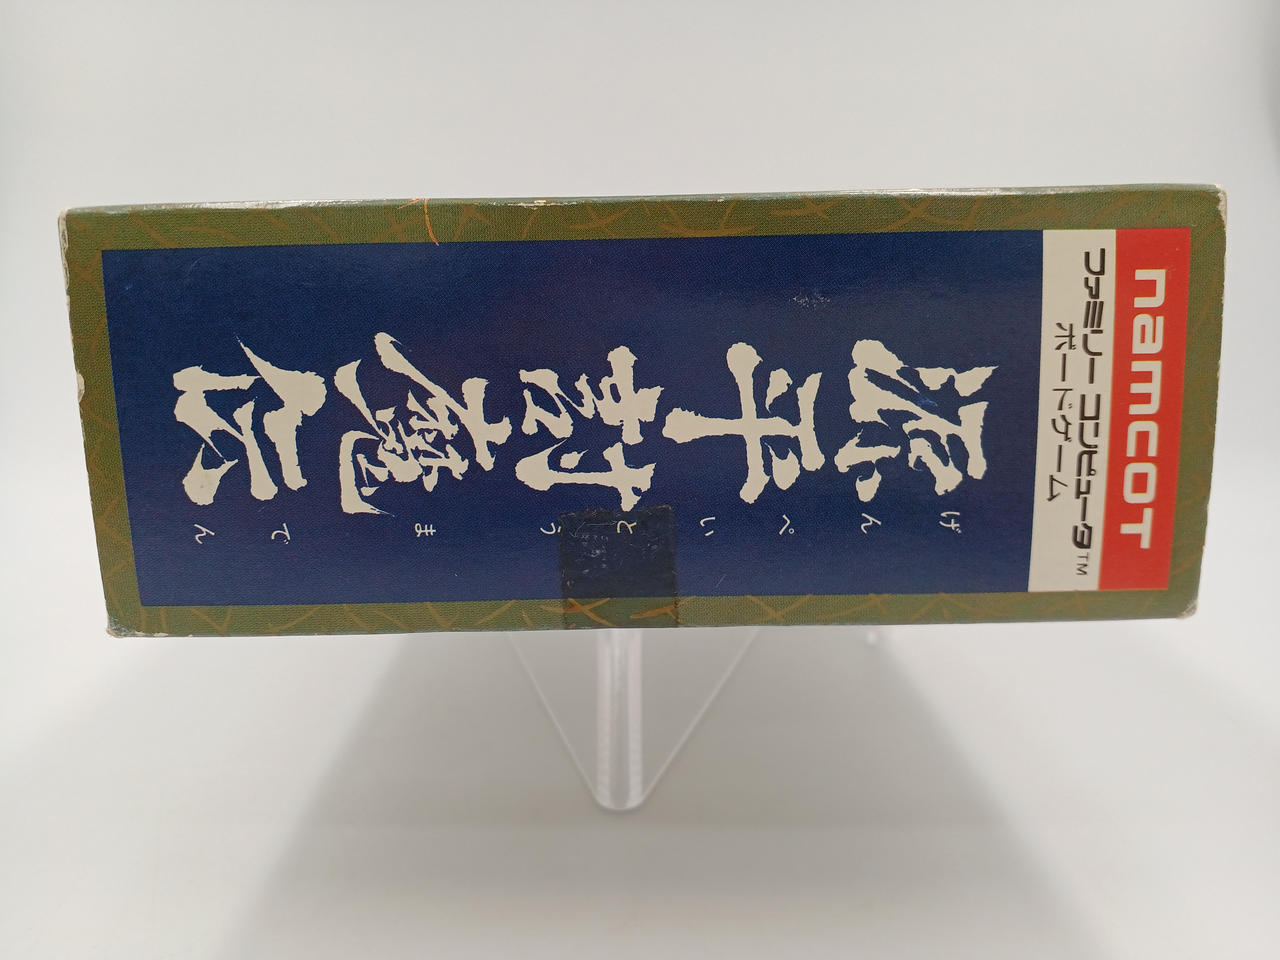 namcot
ファミリー コンピュータ™
ボードゲーム
源平討魔伝
げんぺいとうまでん